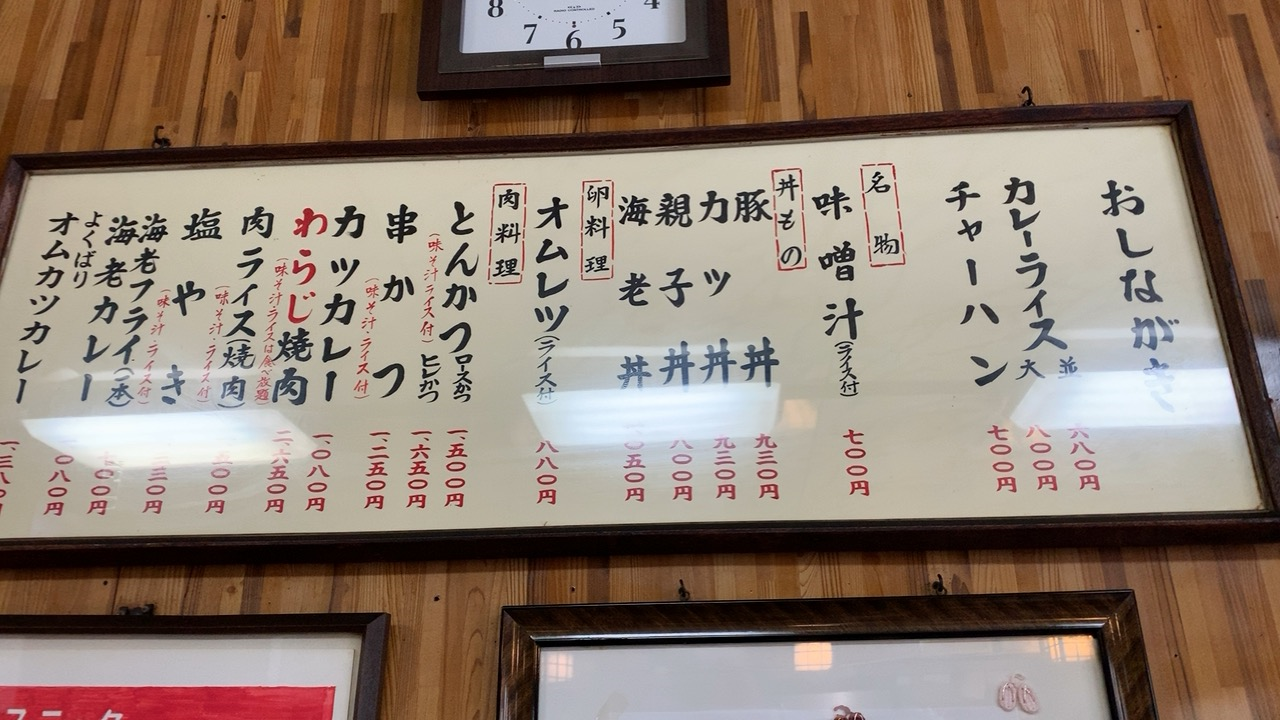 おしながき
カレーライス 並 六八〇円
大 八〇〇円
チャーハン 七〇〇円
名物
味噌汁(ライス付) 七〇〇円
丼もの
豚丼 九三〇円
カツ丼 九三〇円
親子丼 八〇〇円
海老丼
卵料理
オムレツ(ライス付) 八八〇円
肉料理
とんかつ ロースかつ 一、五〇〇円
ヒレかつ 一、六五〇円
(味そ汁ライス付)
串かつ 一、二五〇円
(味そ汁・ライス付)
カツカレー 一、〇八〇円
わらじ焼肉 二、六五〇円
(味そ汁ライスは食べ放題)
肉ライス(焼肉)
(味そ汁・ライス付)
塩やき
(味そ汁・ライス付)
海老フライ(一本)
海老カレー
よくばり
オムカツカレー
8 7 6 5 4